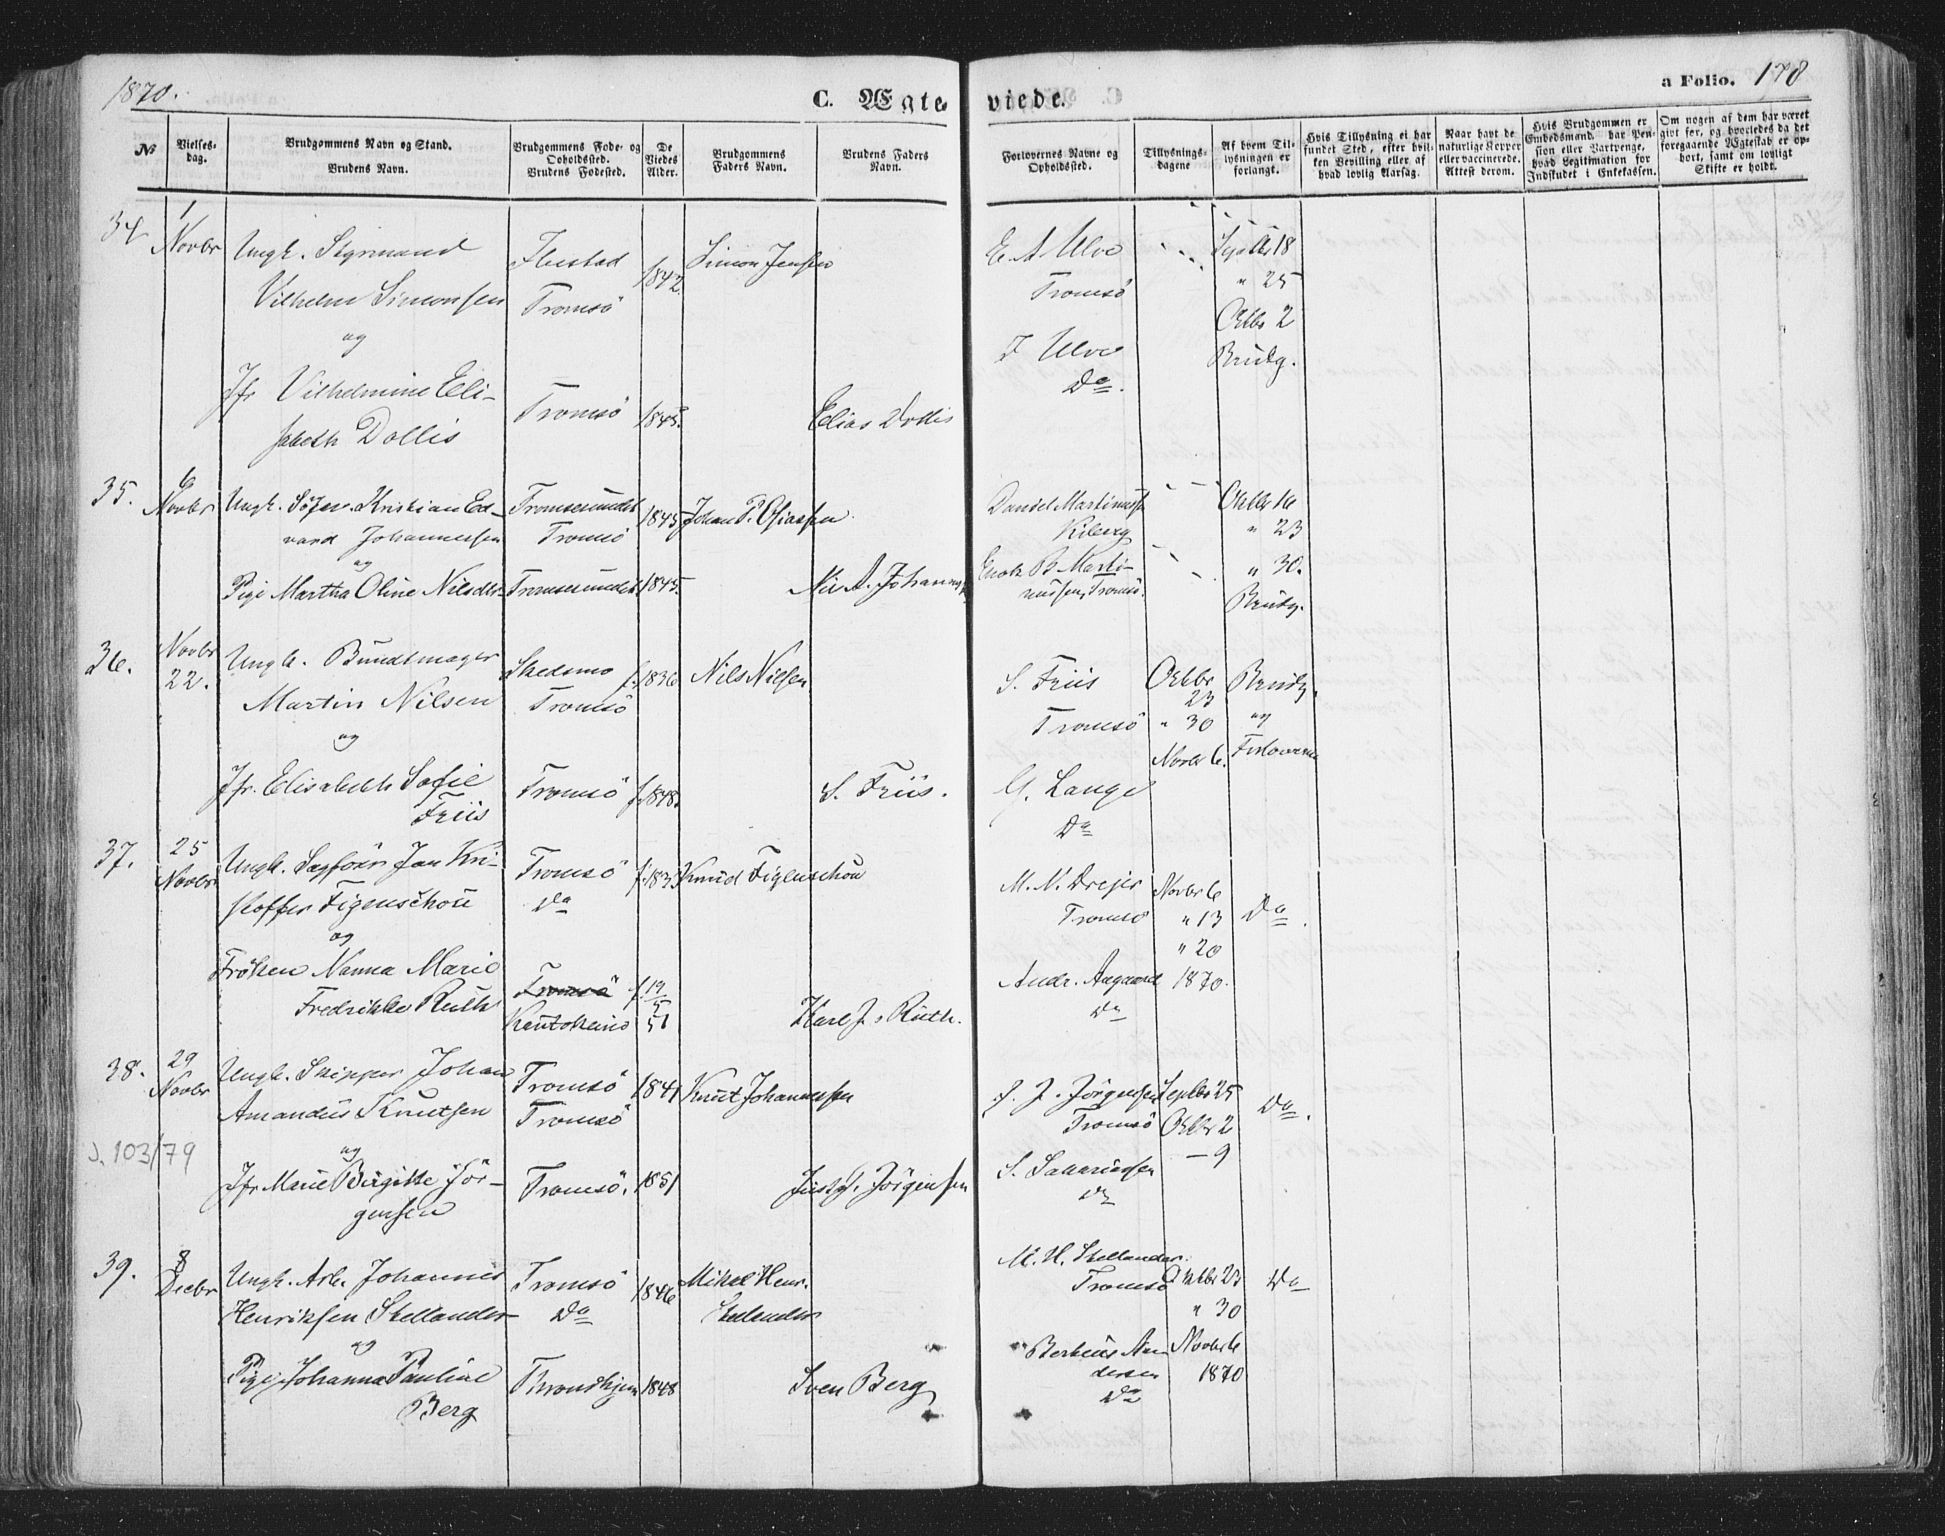 1870.
C. Ægteviede.
a Folio. 178
No
Vielsesdag.
Brudgommens Navn og Stand.
Brudens Navn.
Brudgommens Føde- og
Opholdssted.
Brudens Fødested.
De
Viedes
Alder.
Brudgommens
Faders Navn.
Brudens Faders
Navn.
Forlovernes Navne og
Opholdssted.
Tillysnings-
dagene
Af hvem Til-
lysningen er
forlangt.
Hvis Tillysning ei har
fundet Sted, efter hvil-
ken Bevilling eller af
hvad lovlig Aarsag.
Naar havt de
naturlige Kopper
eller vaccinerede.
Attest derom.
Hvis Brudgommen er
Embedsmand, har Pen-
sion eller Vartpenge,
hvad Legitimation for
Indskudet i Enkekassen.
Om nogen af dem har været
givt før, og hvorledes da det
foregaaende Ægteskab er op-
hørt, samt om lovligt
Skifte er holdt.
34
1
Novbr
Ungk. Sigmund
Vilhelm Simonsen
og
Jfr Vilhelmine Eli-
sabeth Dollis
Tromsö
1842.
Tromsö
1845.
Simon Jensen
Elias Dollis
E. A Ulve
Tromsö
J Ulve
Do.
Septbr 18
" 25
Octbr 2
Brudg.
35.
6
Novbr
Ungk. Söfr. Kristian Ed-
vard Johannessen
og
Pige Martha Oline Nilsdtr
Tromsesundet
Tromsö
Tromsesundet
1845
1845.
Johan P. Osiassen
Nils A. Johannes
Daniel Martinussn
Kiberg
Enok B Marti-
nussen, Tromsö.
Octbr 16
" 23
" 30.
Brudg.
36.
Novbr
22.
Ungk. Bundtmager
Martin Nilsen
og
Jfr. Elisabeth Sofie
Friis
Skedsmo
Tromsö
Tromsö
f. 1836
f. 1848.
Nils Nilsen
S. Friis.
S. Friis
Tromsö
G. Lange
Do
Octbr
23
" 30
Novbr 6.
Brudg.
og
Forloverne
37.
25
Novbr
Ungk. Sagförer Jan Kri-
stoffer Figenschou
og
Fröken Nanna Marie
Fredrikke Ruth
Tromsö
Do
Tromsö
Kautokeino
f. 1833
f. 19
5
51
Knud Figenschou
Karl J. Ruth.
M. N. Drejer
Tromsö
Andr. Aagaard
Do
Novbr 6
" 13
" 20
1870.
Do.
38.
29
Novbr
J. 103/79
Ungk. Skipper Johan
Amandus Knutsen
og
Jfr Marie Birgitte Jör-
gensen
Tromsö
Tromsö
Tromsö.
1841
1851
Knut Johannessen
Jörgensen
J. J. Jörgensen
Tromsö
S. Sakariassen
Do
Septbr 25
Octbr 2
— 9
Do.
39.
8
Decbr
Ungk. Arb. Johannes
Henriksen Stellander
og
Pige Johanna Pauline
Berg
Tromsö
Do
Throndhjem
1846
1848
Mikal Henr.
Stellander
Sven Berg
M. H. Stellander.
Tromsö
Berteus An-
dersen
Do
Octbr 23
" 30
Novbr 6
1870
Do